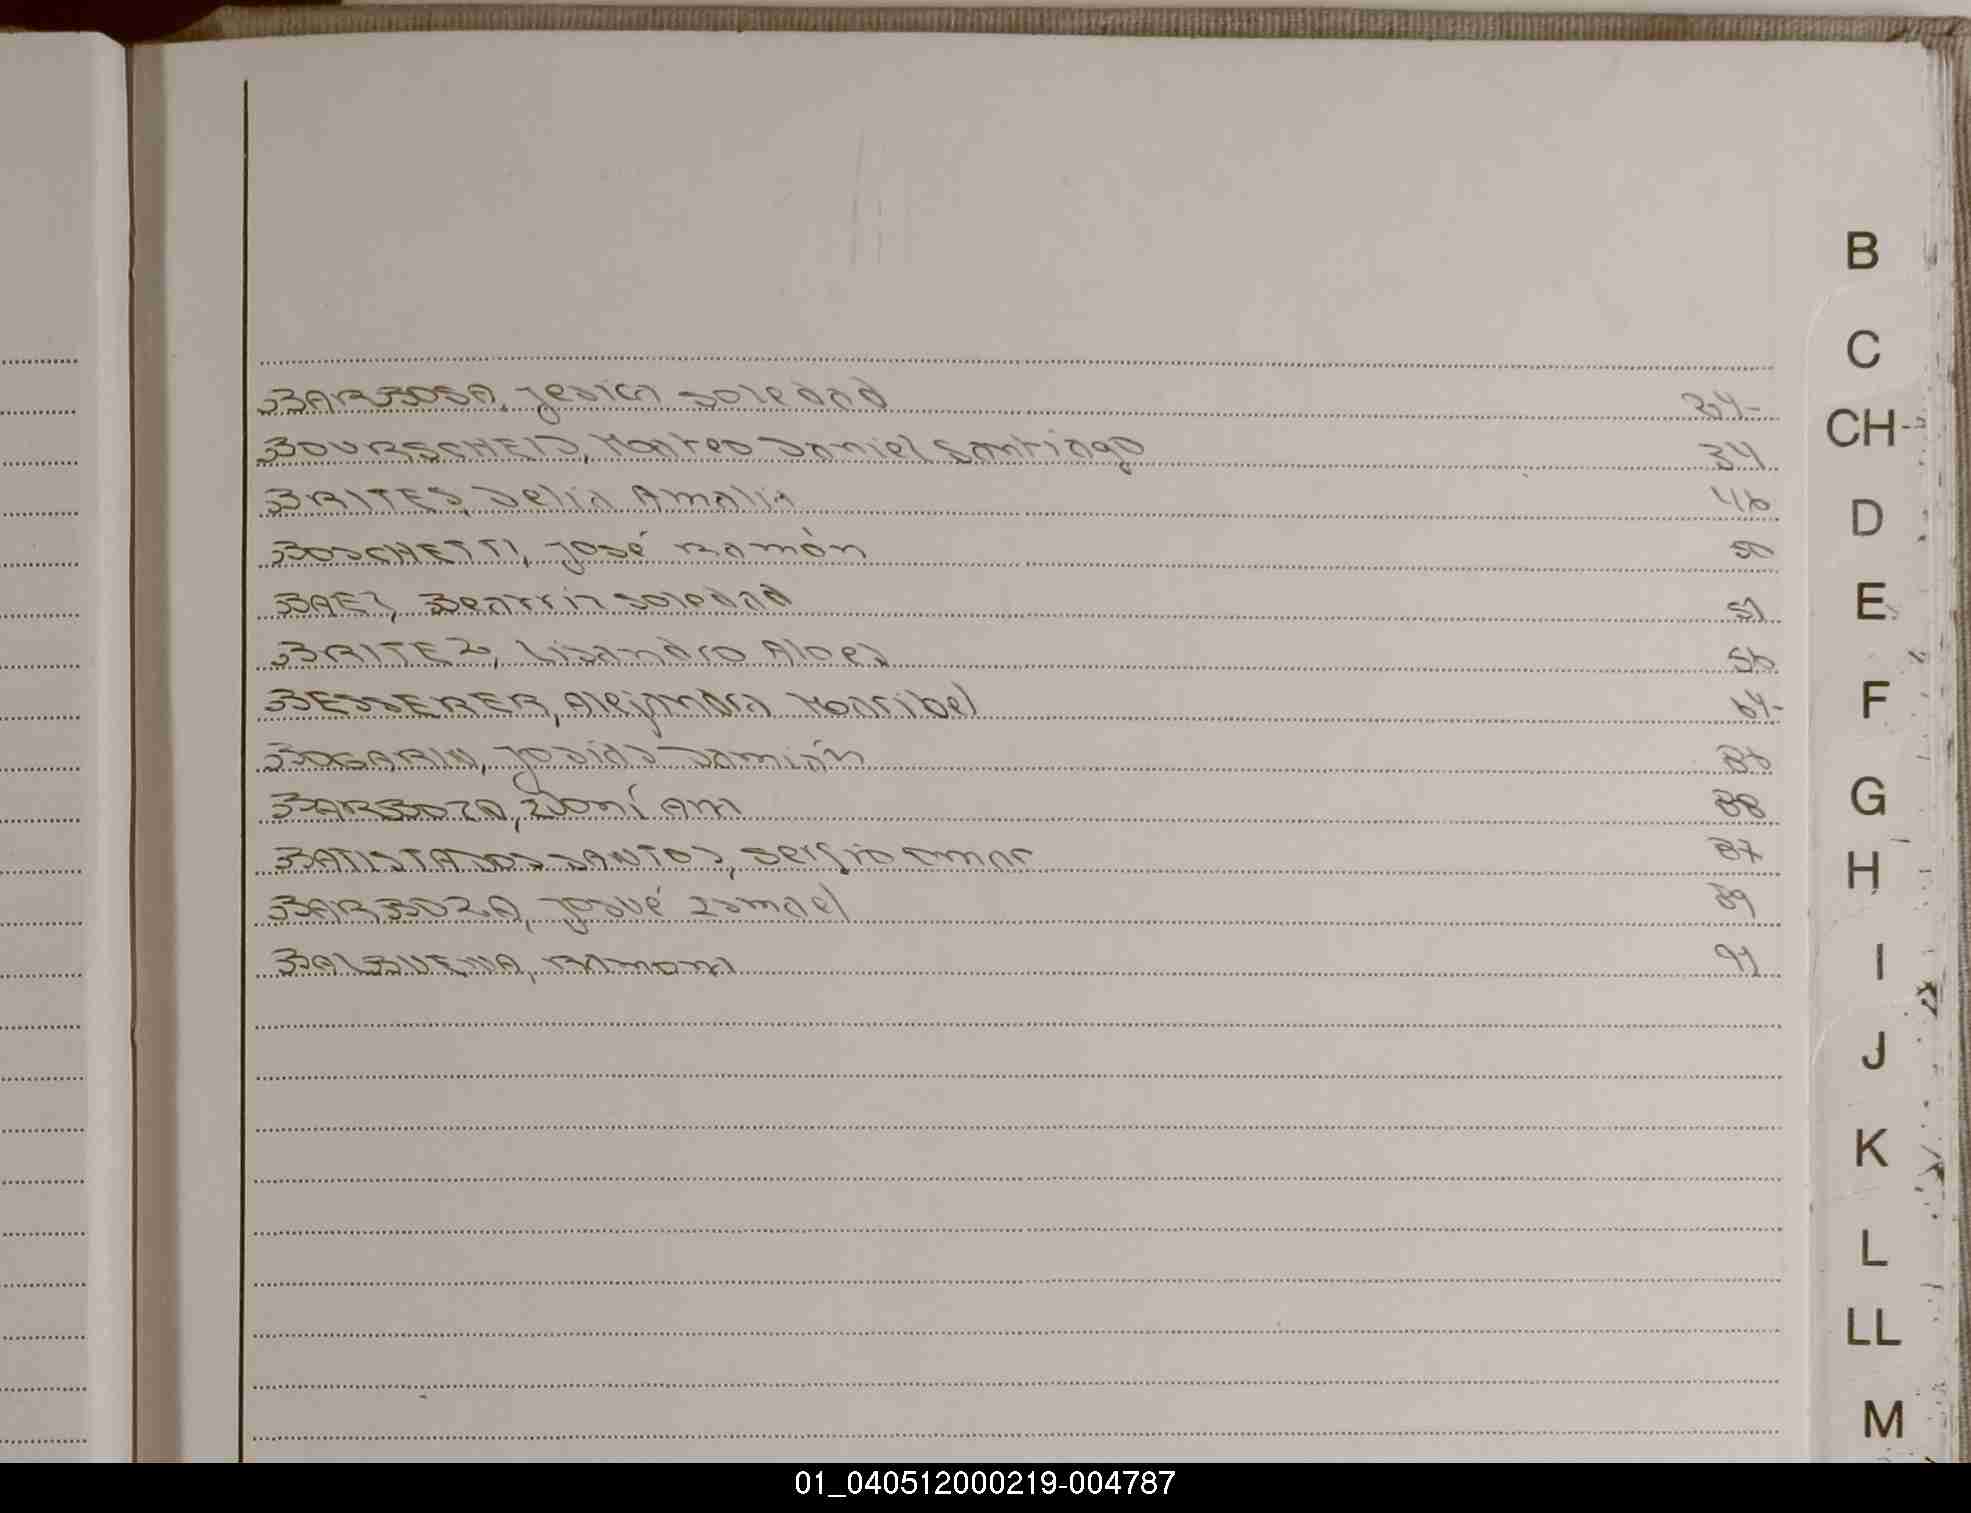 BARBOSA, Jesica Soledad
BOURSCHEID, Mateo Daniel Santiago 34
BRITES, Delia Amalia 46
BOSCHETTI, José Ramón 50
BAEZ, Beatriz Soledad 51
BRITEZ, Lisandro 56
BESSERER, Alejandra Maribel 64-
BOGARIN, Josias Damián 86
BARBOZA, Ana 88
BATISTA DOS SANTOS, Sergio Omar 87
BARBOZA, Josué Ismael 89
BALBUENA, Ramona 91
B
C
CH
D
E
F
G
H
I
J
K
L
LL
M
01_040512000219-004787